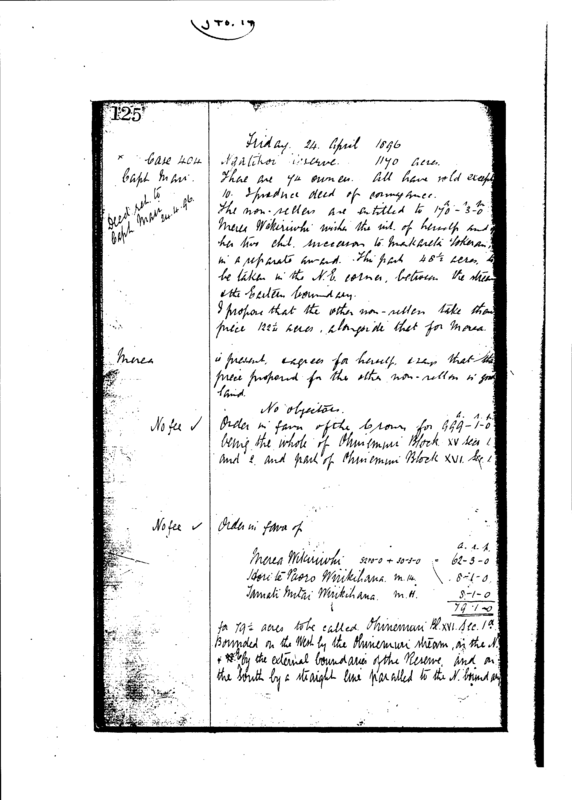 125
Friday. 24. April 1896
Case 404
Capt. Mair.
Deed ret. to
Capt Mair
reserve. 1170 acres.
There are 74 owners. All have sold except
10. I produce deed of conveyance.
The non-sellers are entitled to 170-3-0
Merea Wikiriwhi wishes the int. of herself and of
her two chil. successors to Makareta
in a separate award. This part acres, to
be taken in the N.E. corner, between the stream
& the Eastern boundary.
I propose that the other non-sellers take their
piece 122½ acres, alongside that for Merea.
Merea
is present, & agrees for herself, & says that the
piece proposed for the other non-sellers is good
land.
No objectors.
No fee ✓
a. r. p.
Order in favor of the Crown for 999-1-0
being the whole of Ohinemuri Block XV Secs 1
and 2, and part of Ohinemuri Block XVI. Sec 1
No fee ✓
Order in favor of
a. r. p.
Merea Wikiriwhi = 62-3-0
Hori te Paoro Wirikihana. m. H. 8-1-0
Tamati Mutai Wirikihana. m. H. 8-1-0
79-1-0
for 79¼ acres to be called Ohinemuri Bl. XVI. Sec. 1A
Bounded on the West by the Ohinemuri stream, on the N.
by the external boundaries of the Reserve, and on
the South by a straight line parallel to the N. boundary